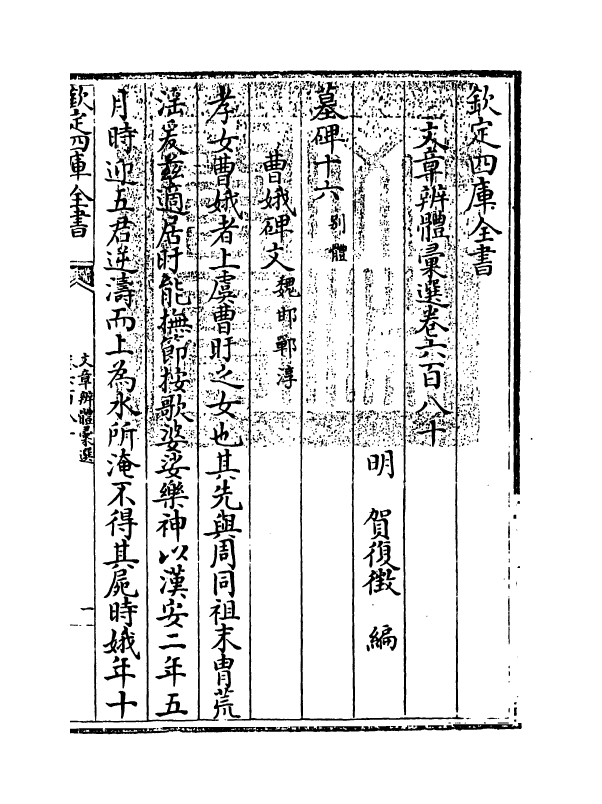 欽定四庫全書
文章辨體彙選卷六百八十
明 賀復徵 編
墓碑十六別體
曹娥碑文魏邯鄲淳
孝女曹娥者上虞曹盱之女也其先與周同祖末胄荒
淫爰兹適居盱能撫節按歌婆娑樂神以漢安二年五
月時迎五君逆濤而上為水所淹不得其屍時娥年十
欽定四庫全書
文章辨體彙選
一